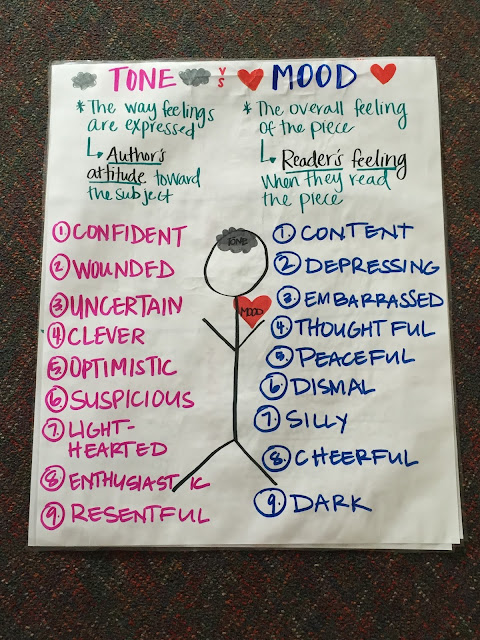 TONE VS MOOD
* The way feelings
are expressed
Author's
attitude toward
the subject
* The overall feeling
of the piece
Reader's feeling
when they read
the piece
① CONFIDENT
② WOUNDED
③ UNCERTAIN
④ CLEVER
⑤ OPTIMISTIC
⑥ SUSPICIOUS
⑦ LIGHT-
HEARTED
⑧ ENTHUSIASTIC
⑨ RESENTFUL
TONE
MOOD
① CONTENT
② DEPRESSING
③ EMBARRASSED
④ THOUGHTFUL
⑤ PEACEFUL
⑥ DISMAL
⑦ SILLY
⑧ CHEERFUL
⑨ DARK